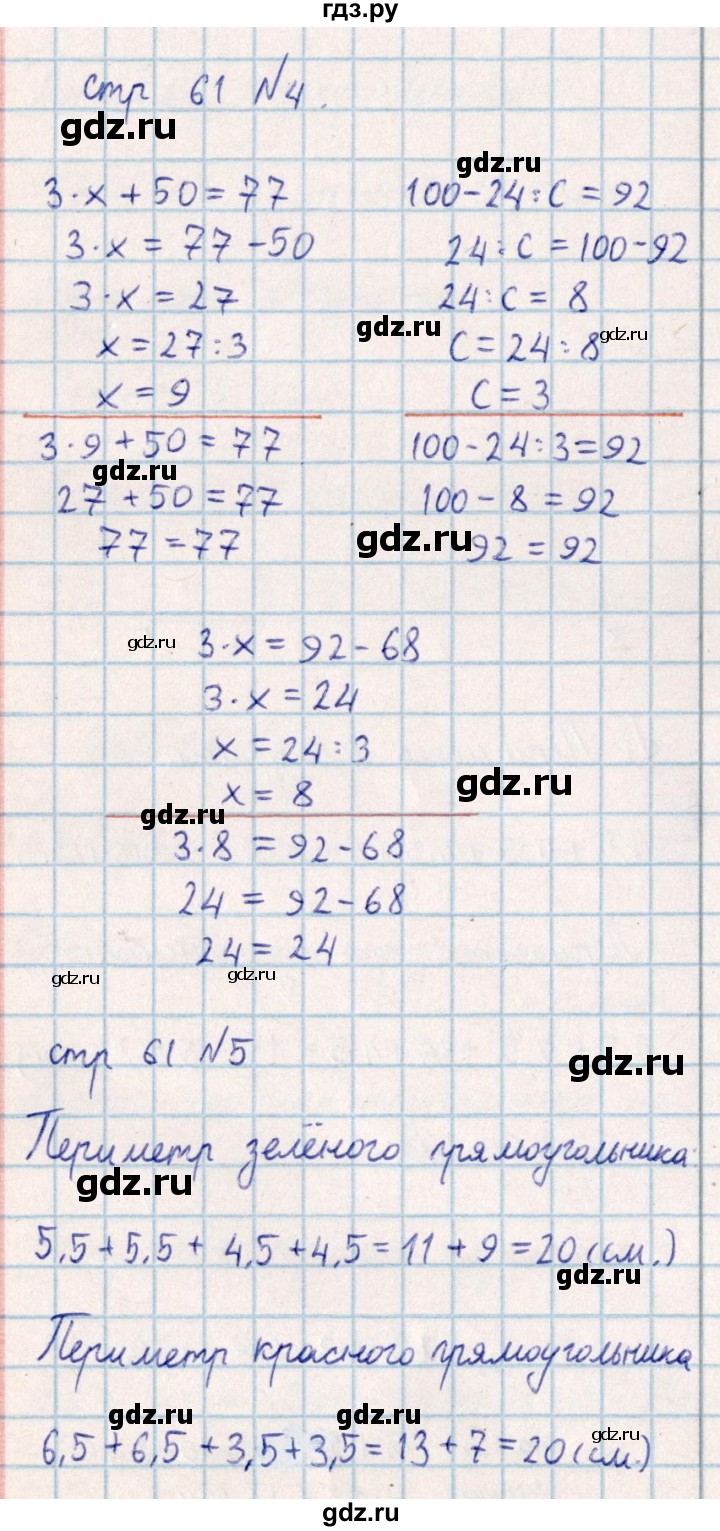 гдз.ру
стр 61 №4.
gdz.ru
gdz.ru
3·x+50=77
3·x=77-50
3·x=27
x=27:3
x=9
3·9+50=77
27+50=77
77=77
100-24:C=92
24:C=100-92
24:C=8
C=24:8
C=3
100-24:3=92
100-8=92
92=92
gdz.ru
gdz.ru
gdz.ru
gdz.ru
gdz.ru
3·x=92-68
3·x=24
x=24:3
x=8
gdz.ru
gdz.ru
3·8=92-68
24=92-68
24=24
gdz.ru
gdz.ru
стр 61 №5
gdz.ru
Периметр зелёного прямоугольника:
gdz.ru
5,5+5,5+4,5+4,5=11+9=20(см.)
gdz.ru
Периметр красного прямоугольника
gdz.ru
gdz.ru
gdz.ru
6,5+6,5+3,5+3,5=13+7=20(см.)
gdz.ru